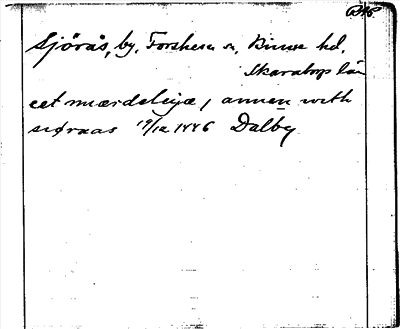 Sjörås, by, Forshem sn, Kinne hd,
Skaraborgs län
eet muærdeleyæ i annen with
siøraas 19/12 1446 Dalby